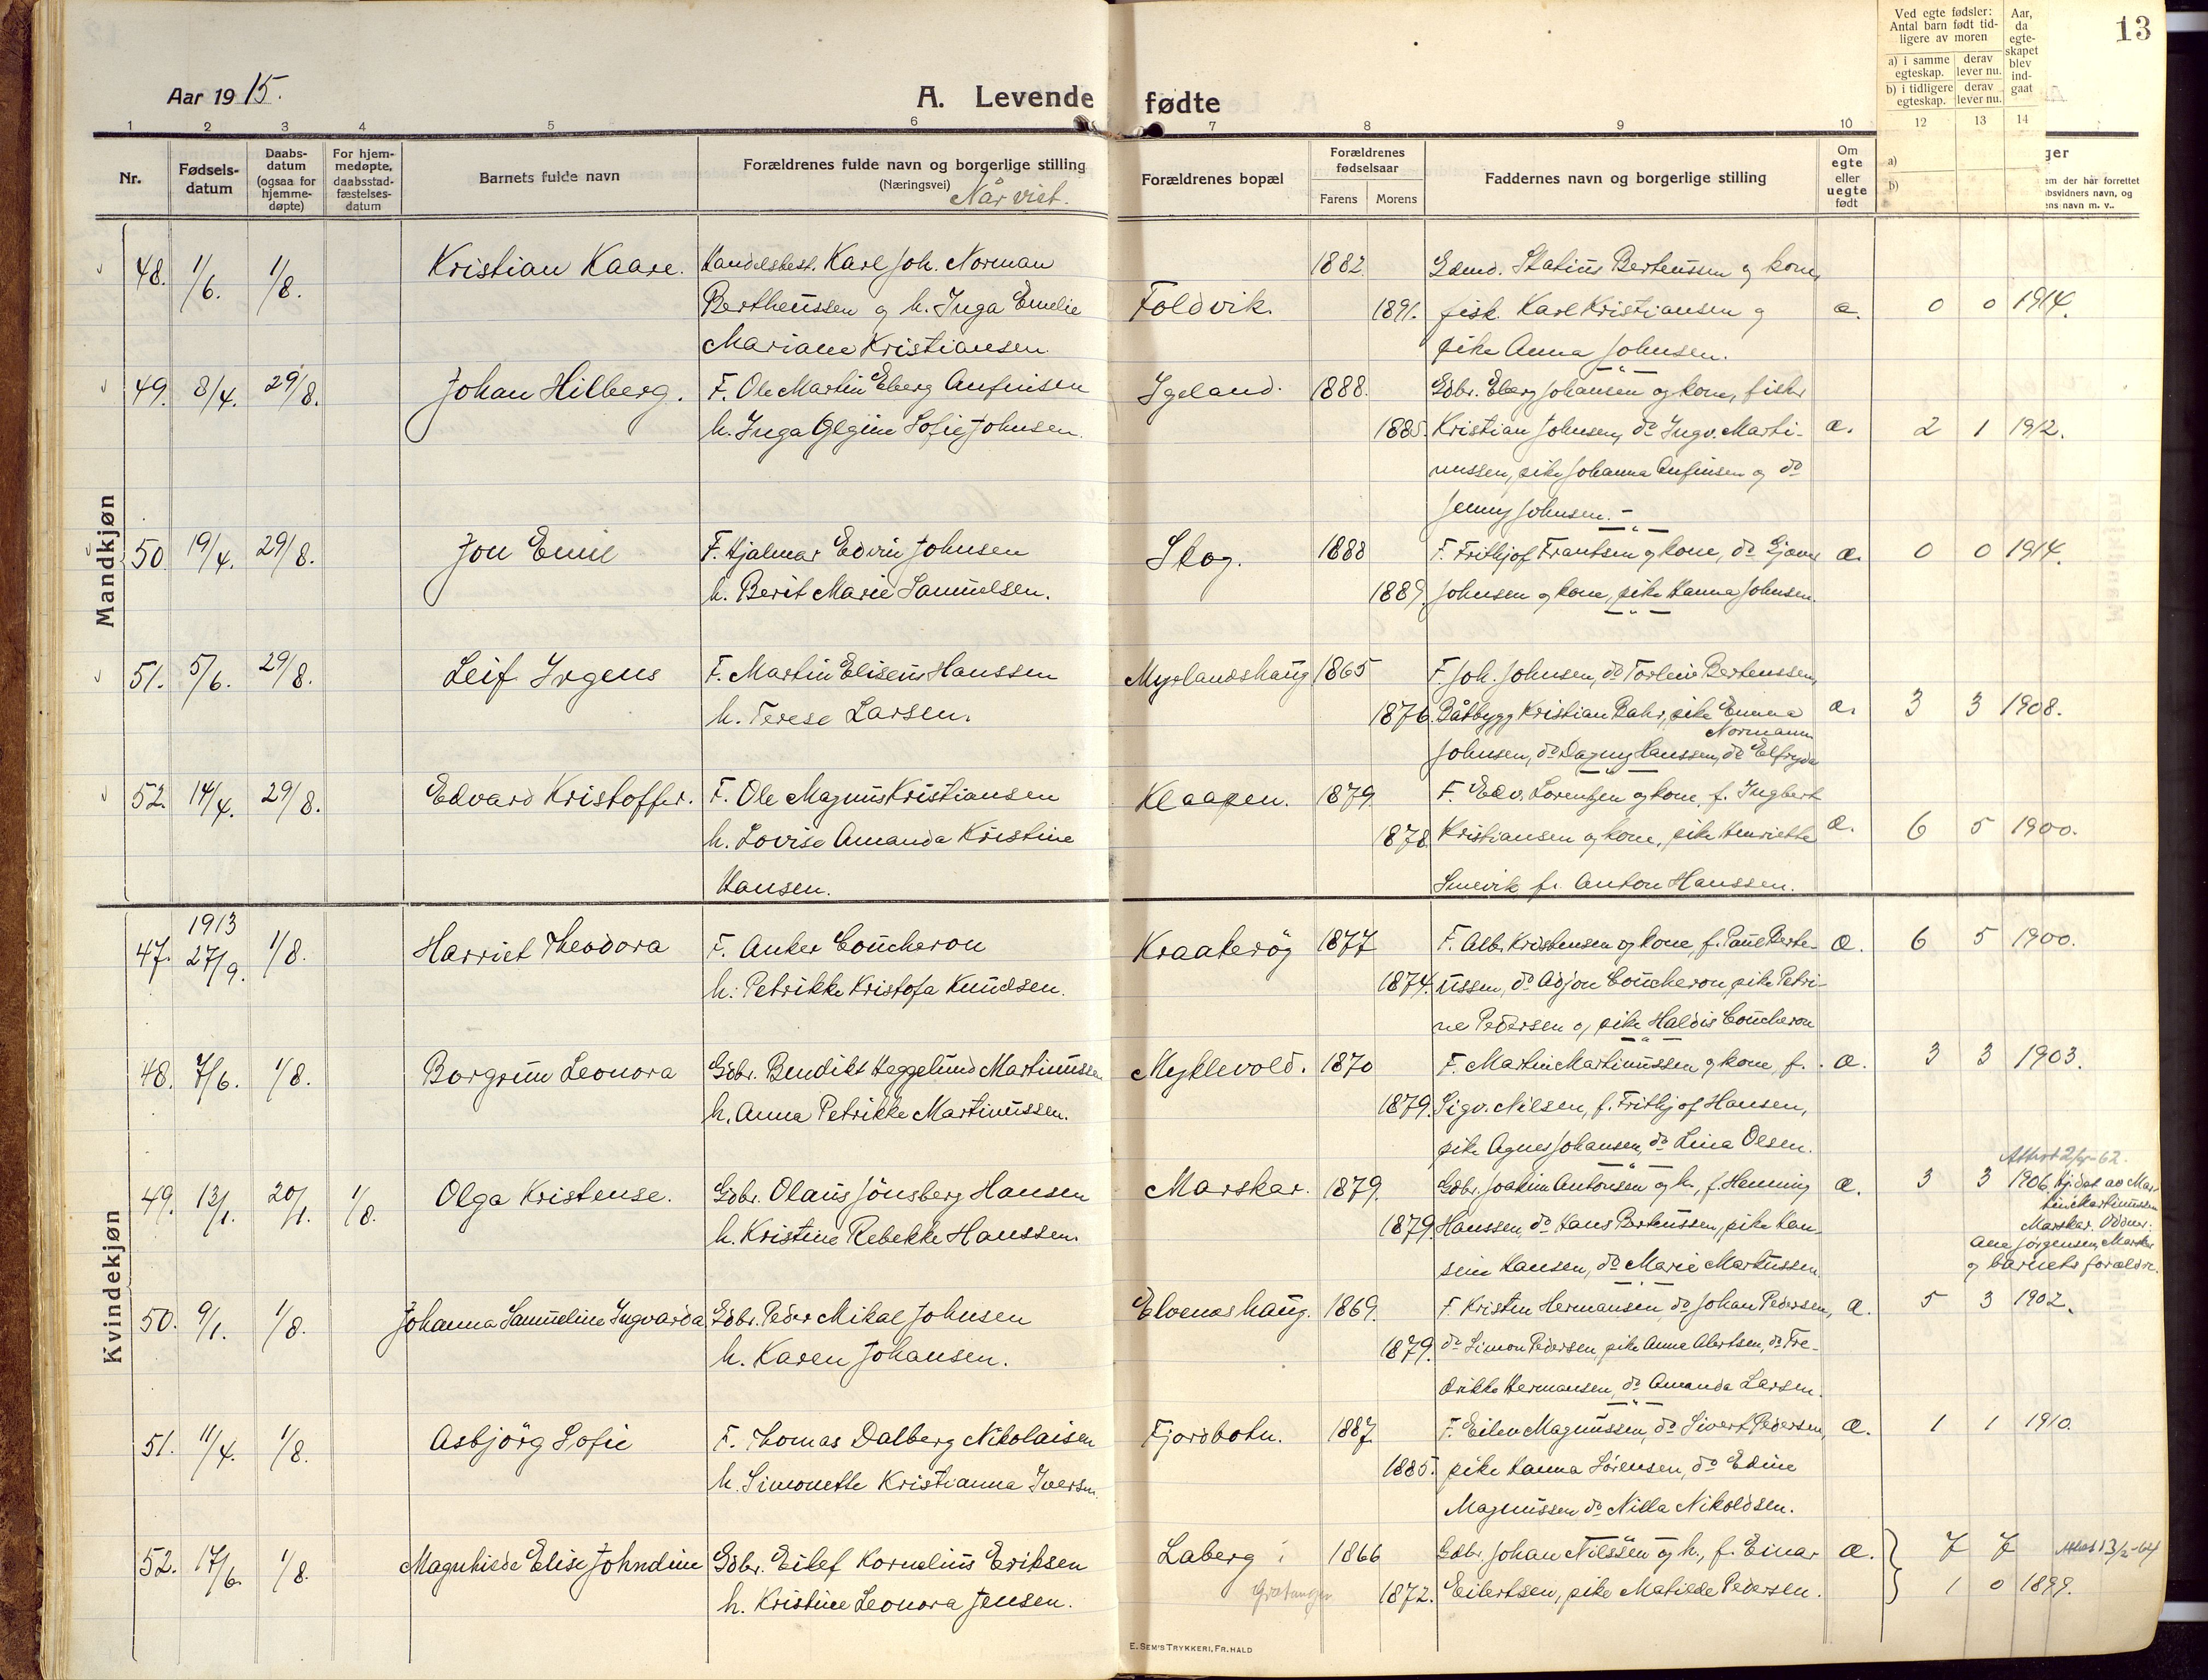 Aar 1915.
A. Levende fødte
13
Ved egte fødsler: Antal barn født tidligere av moren
a) i samme egteskap. derav lever nu.
b) i tidligere egteskap. derav lever nu.
Aar, da egteskapet blev indgaat
1 2 3 4 5 6 7 8 9 10 12 13 14
Nr.
Fødsels-datum
Daabs-datum (ogsaa for hjemme-døpte)
For hjem-medøpte, daabsstad-fæstelses-datum
Barnets fulde navn
Forældrenes fulde navn og borgerlige stilling (Næringsvei) Når viet.
Forældrenes bopæl
Forældrenes fødselsaar
Farens Morens
Faddernes navn og borgerlige stilling
Om egte eller uegte født
a)
b)
Mandkjøn
48. 1/6. 1/8. Kristian Kaare. Handelsbest. Karl Joh. Norman 1882 Edmd. Statius Berteussen og kone,
Bertheussen og h. Inga Emelie Foldvik. 1891. fisk. Karl Kristiansen og æ. 0 0 1914.
Mariane Kristiansen. pike Anna Johnsen.
49. 8/4. 29/8. Johan Hilberg. F. Ole Martin Eberg Anfinsen Igeland. 1888. Gdbr. Eberg Johansen og kone, fisk.
h. Inga Olgine Sofie Johnsen. 1885. Kristian Johnsen, do Ingv. Marti- æ. 2 1 1912.
nussen, pike Johanna Anfinsen og do
Jenny Johnsen.
50. 19/4. 29/8. Jon Emil F. Hjalmar Edvin Johnsen Skog. 1888 F. Frithjof Frantsen og kone, do æ. 0 0 1914.
h. Berit Marie Samuelsen. 1889. Johnsen og kone, pike Hanna Johnsen.
51. 5/6. 29/8. Leif Irgens F. Martin Eliseus Hanssen Myrlandshaug 1865 F. Joh. Johnsen, do Torleiv Berteussen,
h. Terese Larsen. 1876. Båtbygg Kristian Bahr, pike Emma æ. 3 3 1908.
Normann
Johnsen, do Dagny Hanssen, do Elfryda
52. 14/4. 29/8. Edvard Kristoffer. F. Ole Magnus Kristiansen Klaapen. 1879 F. Edv. Lorentzen og kone, f. Ingbert
h. Lovise Amanda Kristine 1878 Kristiansen og kone, pike Henriette æ. 6 5 1900.
Hansen. Smevik fr. Anton Hanssen.
Kvindekjøn
1913
47. 27/9. 1/8. Harriet Theodora F. Anker Coucheron Kraakerøy 1877 F. Alb. Kristensen og kone, f. Paul Berte- æ. 6 5 1900.
h. Petrikke Kristofa Knudsen. 1874. ussen, do Adjon Coucheron pike Petri-
ne Pedersen og pike Haldis Coucheron
48. 7/6. 1/8. Borgrun Leonora Gdbr. Bendikt Heggelund Martinussen Myklevold. 1870 F. Martin Martinussen og kone, f. æ. 3 3 1903.
h. Anna Petrikke Martinussen. 1879. Sigv. Nilsen, f. Frithjof Hansen,
pike Agnes Johansen, do Lina Olsen.
49. 13/1. 20/1. 1/8. Olga Kristense. Gdbr. Olaus Jönsberg Hansen Marskar. 1879. Gdbr. Joakim Antonsen og h., f. Henning æ. 3 3 1906 Hj.døt av Mar-
h. Kristine Rebekke Hanssen. 1879. Hanssen, do Hans Berteussen, pike Han- tin Martinussen
Marskar. Vidner:
sine Hansen, do Marie Markussen. Ane Jörgensen, Marskar
og barnets forældre.
50. 9/1. 1/8. Johanna Samueline Ingvarda Gdbr. Peder Mikal Johnsen Elvenæshaug. 1869. F. Kristen Hermansen, do Johan Pedersen, æ. 5 3 1902.
h. Karen Johansen. 1879. do Simon Pedersen, pike Anne Albertsen, do Fre-
drikke Hermansen, do Amanda Larsen.
51. 11/4. 1/8. Asbjörg Sofie F. Thomas Dalberg Nikolaisen Fjordbotn. 1887. F. Eilev Magnussen, do Sivert Pedersen, æ. 1 1 1910.
h. Simonette Kristianna Iversen. 1885. pike Hanna Sörensen, do Edine
Magnussen do Nilla Nikolaisen.
52. 17/6. 1/8. Magnhilde Elise Johndine Gdbr. Eilef Kornelius Eriksen Laberg i 1866 Gdbr. Johan Nilssen og h., f. Einar æ. 7 7 Attest 13/2-64
h. Kristine Leonora Jensen. Gratangen 1872. Eilertsen, pike Matilde Pedersen. 1 0 1899.
E. SEM'S TRYKKERI, FR.HALD